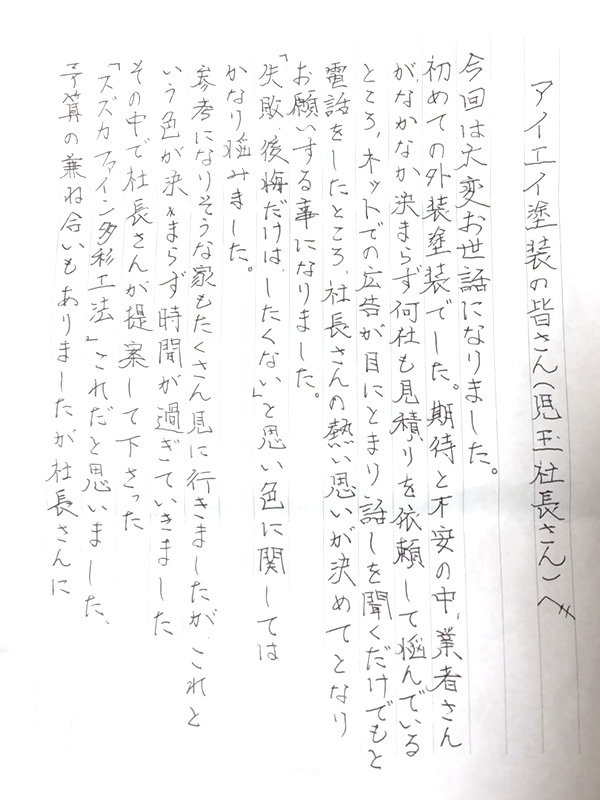 アイエイ塗装の皆さん(児玉社長さん)へ〃
今回は大変お世話になりました。
初めての外装塗装でした。期待と不安の中、業者さん
がなかなか決まらず何社も見積りを依頼して悩んでいる
ところ、ネットでの広告が目にとまり話しを聞くだけでもと
電話をしたところ、社長さんの熱い思いが決めてとなり
お願いする事になりました。
「失敗、後悔だけは、したくない」と思い色に関しては
かなり悩みました。
参考になりそうな家もたくさん見に行きましたが、これと
いう色が決まらず時間が過ぎていきました
その中で社長さんが提案して下さった
「スズカファイン多彩工法」これだと思いました。
予算の兼ね合いもありましたが社長さんに